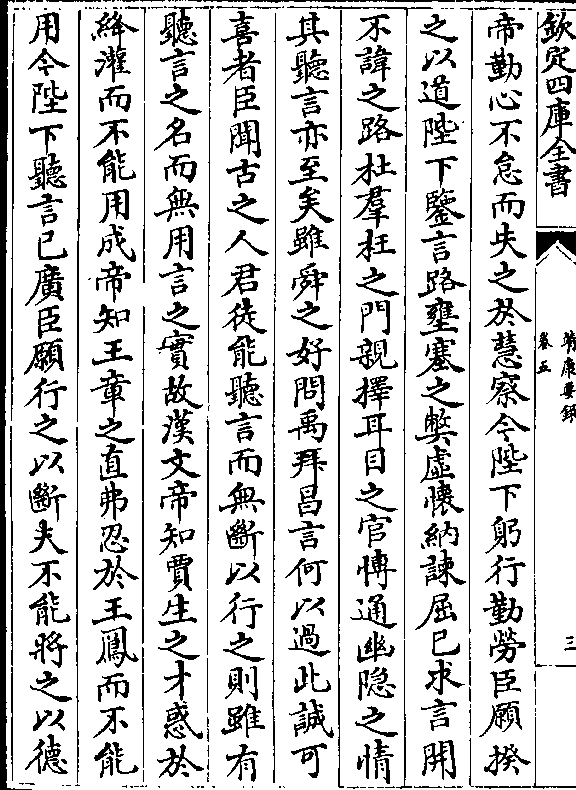 欽定四庫全書
靖康要錄
卷五
三
帝勤心不怠而失之於慧察今陛下躬行勤勞臣願揆
之以道陛下鑒言路壅塞之弊虛懷納諫屈已求言開
不諱之路杜羣枉之門親擇耳目之官博通幽隐之情
其聽言亦至矣雖舜之好問禹拜昌言何以過此誠可
喜者臣聞古之人君徒能聽言而無斷以行之則雖有
聽言之名而無用言之實故漢文帝知賈生之才惑於
絳灌而不能用成帝知王章之直弗忍於王鳳而不能
用今陛下聽言已廣臣願行之以斷夫不能將之以德